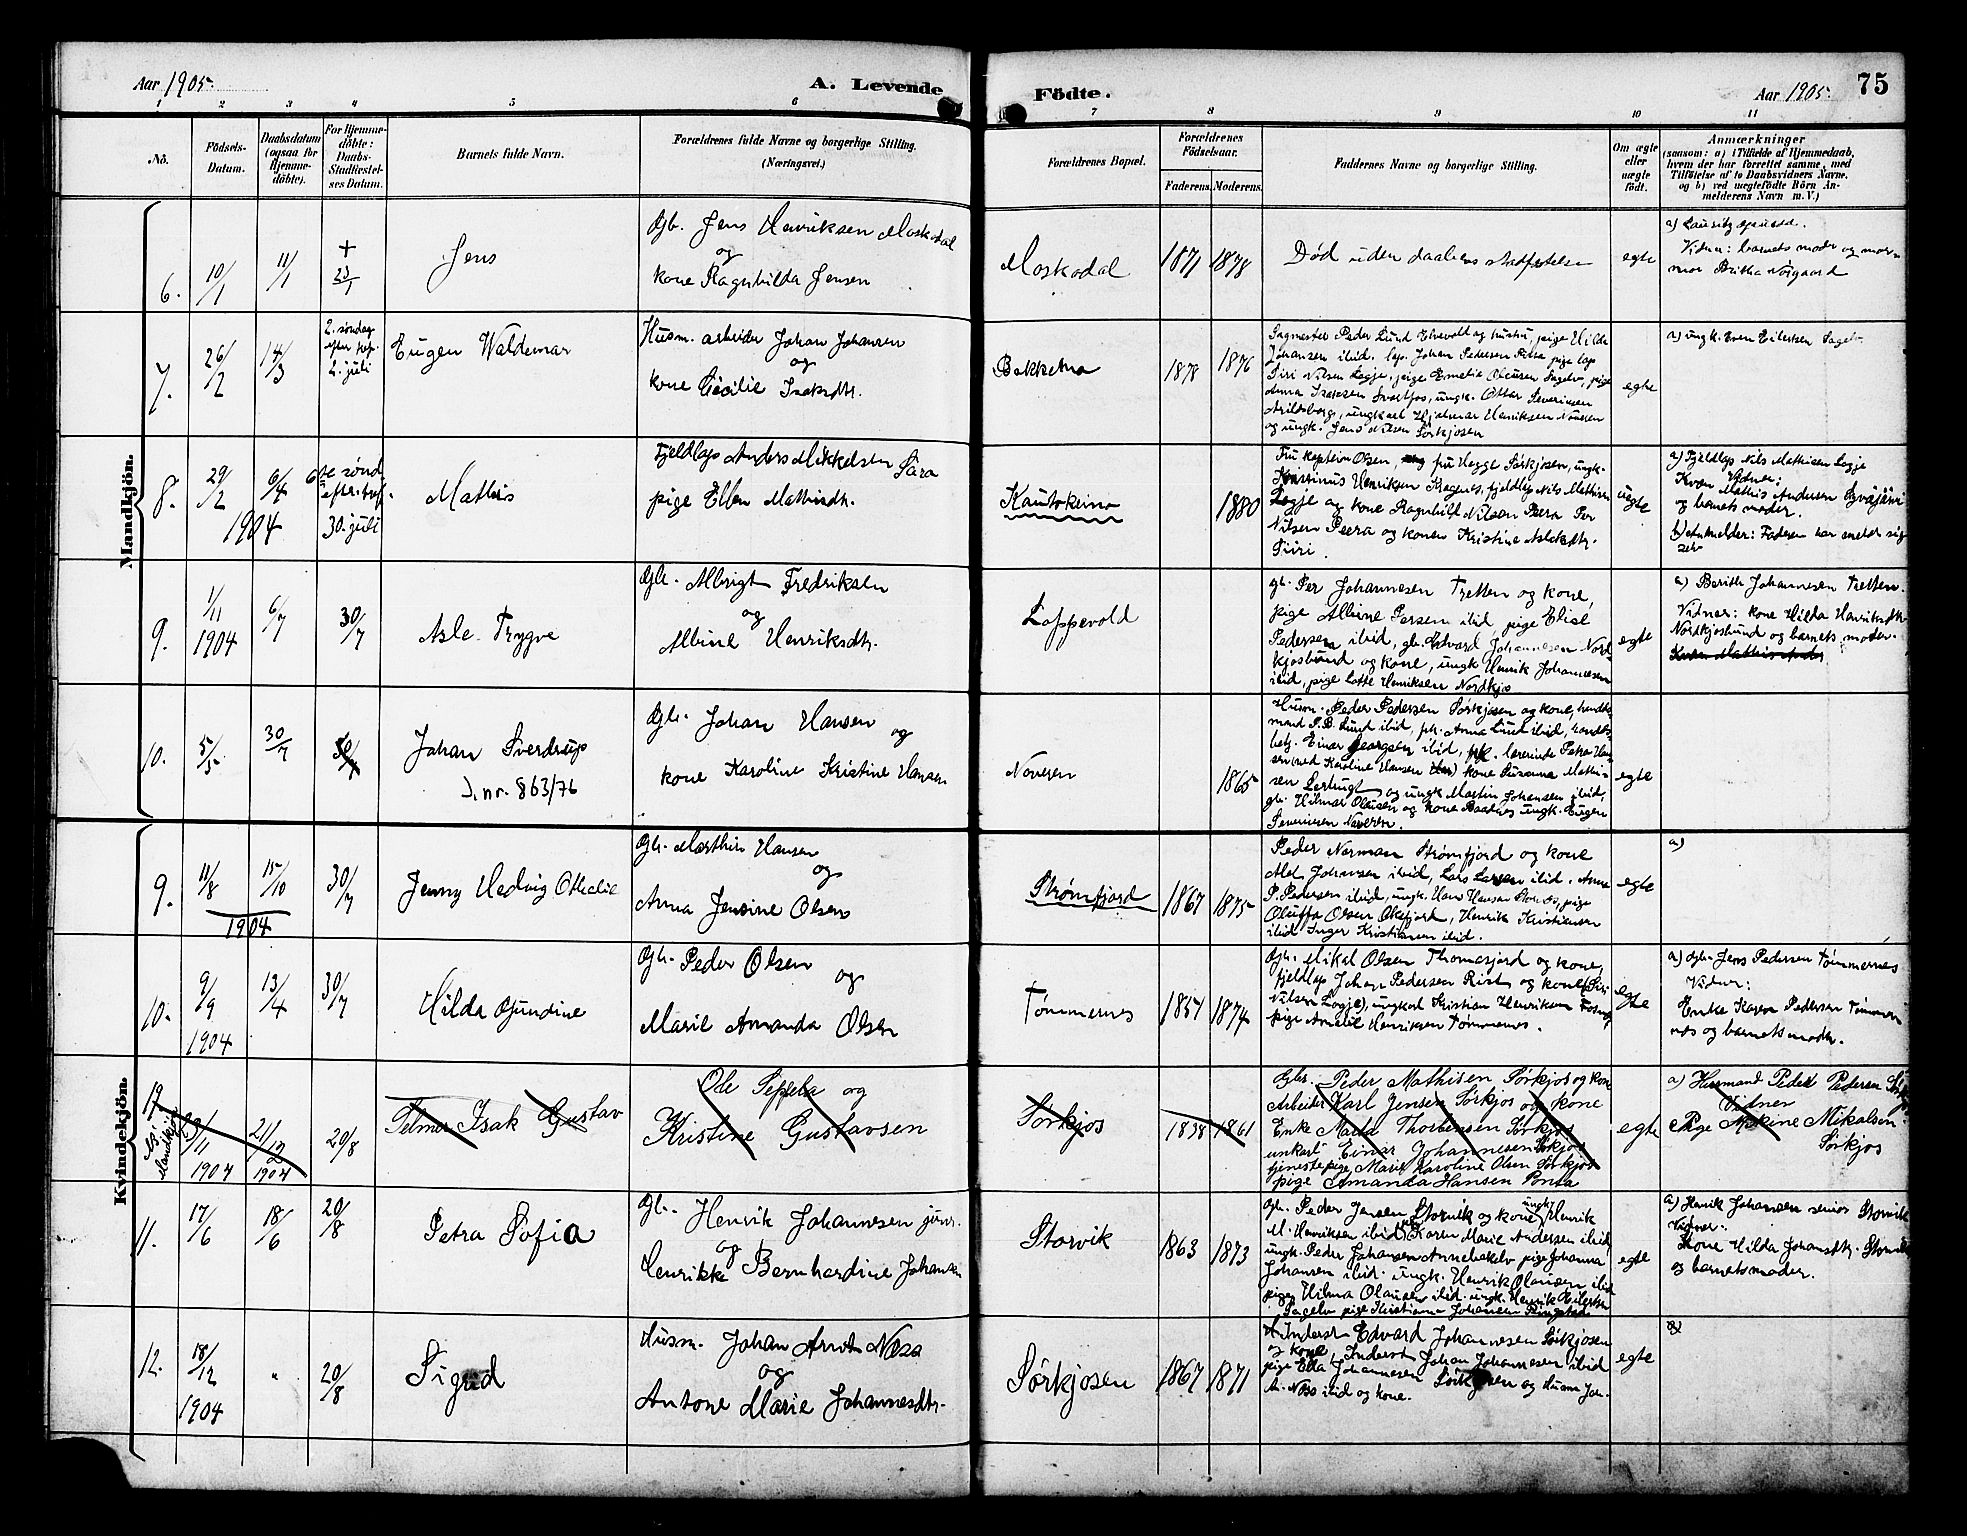 Aar 1905.
A. Levende
Födte.
Aar 1905.
75
1 2 3 4 5 6 7 8 9 10 11
No.
Födsels-
Datum.
Daabsdatum
(ogsaa for
Hjemme-
döbte).
For Hjemme-
döbte:
Daabs-
Stadfæstel-
ses Datum.
Barnets fulde Navn.
Forældrenes fulde Navne og borgerlige Stilling.
(Næringsvei.)
Forældrenes Bopæl.
Forældrenes
Födselsaar.
Faderens. Moderens.
Faddernes Navne og borgerlige Stilling.
Om ægte
eller
uægte
födt.
Anmærkninger
(saasom: a) i Tilfælde af Hjemmedaab,
hvem der har forrettet samme, med
Tilföielse af to Daabsvidners Navne.
og b) ved uægtefödte Börn An-
melderens Navn m. V.)
Mandkjön.
6.
10/1
11/1
+
23/1
Jens
Gbr. Jens Henriksen Moskodal
og
kone Ragnhilda Jensen
Moskodal
1871
1878
Død uden daabens stadfestelse
egte
Vidner: barnets moder og mor-
mor Britha Norgaard
7.
26/2
14/3
2. søndag
efter
2. juli
Eugen Waldemar
Husm. arbeider Johan Johansen
og
kone Cecilie Isaksdtr.
Bakkeha
1878
1876
Johansen ibid. lap. Johan Pedersen
Siri Nilsen Logje, pige Emelie Olausen Sagelv, pige
Anna Isaksen Svartfos, ungk. Ottar Severinsen
Arildsborg, ungkarl Hjalmar Henriksen Naveren
og ungk. Jens Nilsen Sørkjosen
egte
a) ungk. Even Eilertsen Sagelv
8.
29/2
6/4
1904
6te sønd.
efter tref.
30 juli
Mathis
Fjeldlap Anders Mikkelsen Sara
pige Ellen Mathisdtr.
Kautokeino
1880
Fru kaptein Olsen, fru Hegge Sørkjosen, ungk.
Kristinus Henriksen Ragnes, fjeldlap Nils Mathisen
Logje og kone Ragnhild Nilsen Peera Per
Nilsen Peera og konen Kristine Aslaksdtr.
Siiri.
uegte
a) Fjeldlap Nils Mathisen Logje
Vidner:
Kvæn Mathis Andersen
og barnets moder.
b) Anmelder: Faderen har meldt sig
selv
9.
1/11
1904
6/7
30/7
Asle Trygve
Gbr. Albrigt Fredriksen
og
Albine Henriksdtr.
Loppevold
gb. Per Johannesen Tretten og kone,
pige Albine Persen ibid, pige Elise
Pedersen ibid, gbr. Edvard Johannesen Nord-
kjosbund og kone, ungk Henrik Johannesen
ibid, pige Lotte Henriksen Nordkjos
egte
a) Berith Johannesen Tretten
Vidner: kone Hilda Henriksdtr.
Nordkjosbund og barnets moder.
Kvæn Mathis Anders
10.
5/5
30/7
Johan Sverdrup
J. nr. 863/76
Gbr. Johan Hansen
og
kone Karoline Kristine Hansen
Naveren
1865
Husm. Peder Pedersen Sørkjosen og kone, handels-
mand P. B. Lund ibid, frk. Anna Lund ibid, handels-
betj. Einar Georgsen ibid, lærerinde Petra Han-
sen (med Karoline Hansen) kone Susanna Mathi-
sen og ungk Martin Johansen ibid,
gbr. Hilmar Olausen og kone ungk. Eugen
Severinsen Naveren.
egte
Kvindekjön.
9.
11/8
15/10
1904
30/7
Jenny Hedvig Othelie
Gbr. Marthin Hansen
og
Anna Jensine Olsen
Strømfjord
1867
1875
Peder Norman Strømfjord og kone
Alet Johansen ibid, Lars Larsen ibid, Anna
P. Pedersen ibid, ungk. Hans Hansen, pige
Oluffa Olsen Oksfjord, Henrik Kristiansen
ibid Inger Kristiansen ibid.
egte
a)
10.
9/9
1904
13/4
30/7
Hilda Gjundine
Gbr. Peder Olsen
og
Marie Amanda Olsen
Tømmernes
1857
1874
Gbr. Mikal Olsen Thomasjord og kone,
fjeldlap Johan Pedersen Rist og kone (Siri
Nilsen Logje), ungkarl Kristian Henriksen
pige Amelie Henriksen Tømmernes.
egte
a) Gbr. Jens Pedersen Tømmernes
Vidner:
Enke Karen Pedersen Tømmer-
nes og barnets moder.
Mandkjøn
21/12
1904
1904
20/8
Telmer Isak Gustav
Ole Seppela og
Kristine Gustavsen
Sørkjos
1838
1861
Gbr. Peder Mathisen Sørkjos og kone
Arbeider Karl Jensen Sørkjos og kone
Enke Mada Thorbensen Sørkjos
unkarl Einar Johannesen Sørkjos
tjenestepige, Marie Karoline Olsen Sørkjos
pige Amanda Hansen Ponta
egte
a) Husmand Peder Pedersen
Vidner
Pige Mikalsen
Sørkjos
11.
17/6
18/6
20/8
Petra Sofia
Gbr. Henrik Johannesen jun.
og
Henrikke Bernhardine Johansen
Storvik
1863
1873
Gbr. Peder Jensen Storvik og kone, ungk. Henrik
M. Henriksen ibid, Karen Marie Andersen ibid,
ungk. Peder Johansen Annebakelv pige Johanna
Johansen ibid. ungk. Henrik Olausen ibid
pige Hilma Olausen ibid. ungk. Henrik Eilertsen
Sagelv pige Kristianna Johansen Ringstad
egte
a) Henrik Johansen senior Storvik
Vidner:
Kone Hilda Johansdtr. Storvik
og barnets moder.
12.
18/12
1904
"
20/8
Sigrid
Husm. Johan Arnt Ness
og
Antone Marie Johannesdtr.
Sørkjosen
1867
1871
Inderst Edvard Johannesen Sørkjosen
og kone, Inderst Johan Johannesen ibid
pige Ella Johannesen Sørkjosen og Husm Joh.
A. Ness ibid og kone.
egte
a)